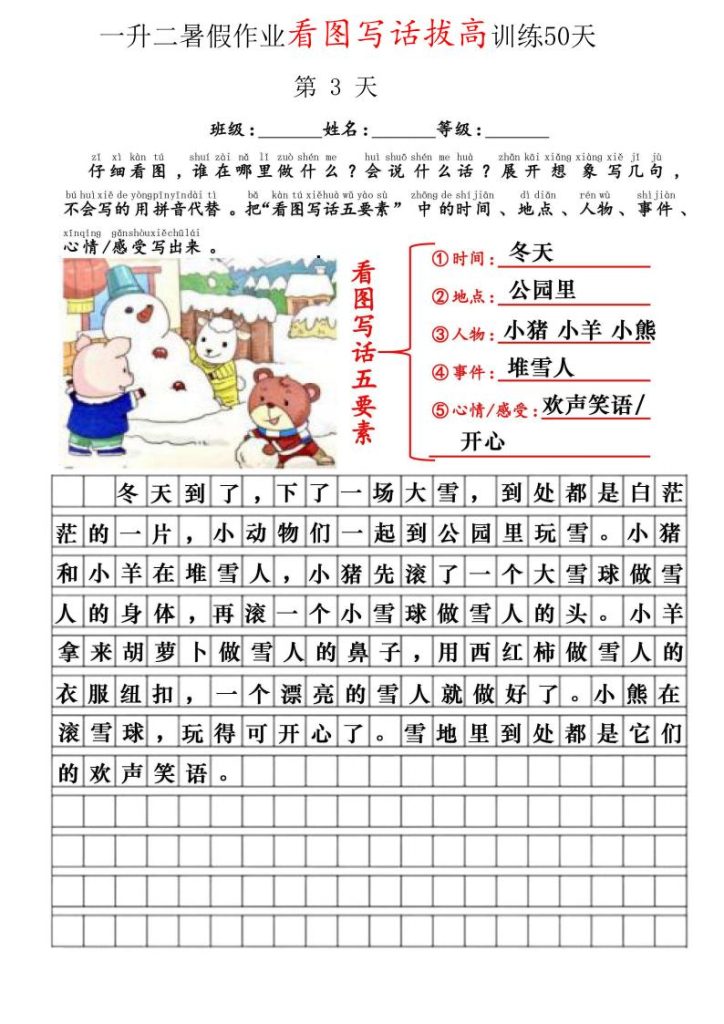 一升二暑假作业看图写话拔高训练50天
第 3 天
班级：______姓名：______等级：______
zǐ xì kàn tú shuí zài nǎ lǐ zuò shén me huì shuō shén me huà zhǎn kāi xiǎng xiàng xiě jǐ jù
仔细看图，谁在哪里做什么？会说什么话？展开想象写几句，
bú huì xiě de yòng pīn yīn dài tì bǎ kàn tú xiě huà wǔ yào sù zhōng de shí jiān dì diǎn rén wù shì jiàn
不会写的用拼音代替。把“看图写话五要素”中的时间、地点、人物、事件、
xīn qíng gǎn shòu xiě chū lái
心情/感受写出来。
看图写话五要素
①时间：冬天
②地点：公园里
③人物：小猪 小羊 小熊
④事件：堆雪人
⑤心情/感受：欢声笑语/
开心
冬天到了，下了一场大雪，到处都是白茫
茫的一片，小动物们一起到公园里玩雪。小猪
和小羊在堆雪人，小猪先滚了一个大雪球做雪
人的身体，再滚一个小雪球做雪人的头。小羊
拿来胡萝卜做雪人的鼻子，用西红柿做雪人的
衣服纽扣，一个漂亮的雪人就做好了。小熊在
滚雪球，玩得可开心了。雪地里到处都是它们
的欢声笑语。